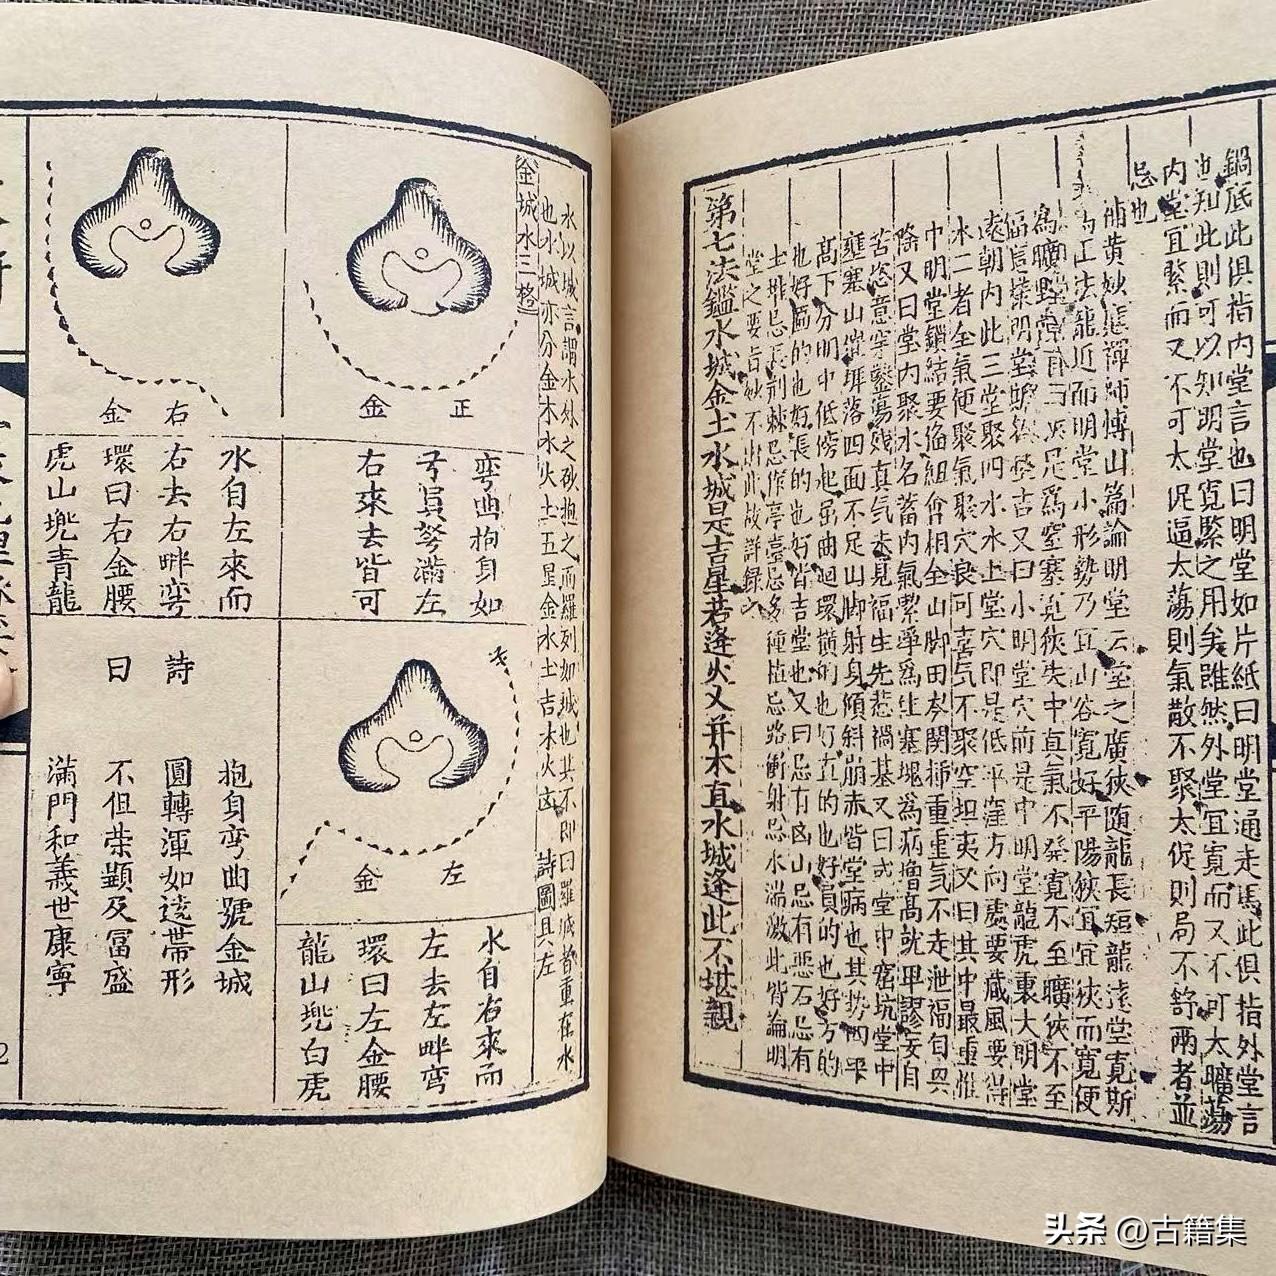 鍋底此俱指內堂言也曰明堂如片紙曰明堂通走馬此俱指外堂言
也知此則可以知明堂寬緊之用矣雖然外堂宜寬而又不可太曠蕩
內堂宜緊而又不可太促逼太蕩則氣散不聚太促則局不舒兩者並
忌也
黃妙應禪師博山篇論明堂云堂之廣狹隨龍長短龍遠堂寬斯
法龍近而明堂小形勢乃宜山谷寬好平陽狹宜宜狹而寬便
為曠野堂為窒塞寬狹失中真氣不發寬不至曠狹不至
明堂古又曰小明堂穴前是中明堂龍虎裏大明堂
遠朝內此三堂聚四水水上堂穴即是低平窪方向處要藏風要得
水二者全氣便聚氣聚穴可氣不聚空坦夷又曰其中最重惟
中明堂鎖結要組會相全山脚田岑關插重重氣不走泄福自與
際又曰堂內聚水名蓄內氣潔淨為佳塞塊為病增高就卑謬妄自
苦恣意穿鑿蕩殘真氣未見福生先惹禍基又曰或堂中窟坑堂中
壅塞山崔落四面不足山脚射身傾斜崩赤皆堂病也其勢四平
高下分明中低傍起屈曲迴環橫的也好直的也好員的也好方的
也好匾的也好長的也好皆吉堂也又曰忌有凶山忌有惡石忌有
土堆忌長荊棘忌作亭臺忌多種植忌路衝射忌水湍激此皆論明
堂之要旨妙不出此故詳錄之
第七法鑑水城金土水城是吉星若逢火又并木直水城逢此不堪親
水以城言謂水外之砂抱之而羅列如城也共不即曰羅城者重在水
也水城亦分金木水火土五星金水土吉木火凶 詩圖具左
金城水三格
正金
彎曲抱身如
弓員彎滿左
右來去皆可
左金
水自右來而
左去左畔彎
環曰左金腰
龍山兜白虎
右金
水自左來而
右去右畔彎
環曰右金腰
虎山兜青龍
詩曰
抱身彎曲號金城
圓轉渾如遶帶形
不但榮顯及富盛
滿門和義世康寧
2
头条 @古籍集